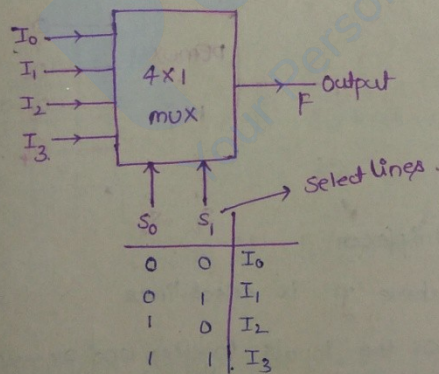 I0
I1
I2
I3
4x1
mux
F
output
Select lines.
S0 S1
0 0 I0
0 1 I1
1 0 I2
1 1 I3